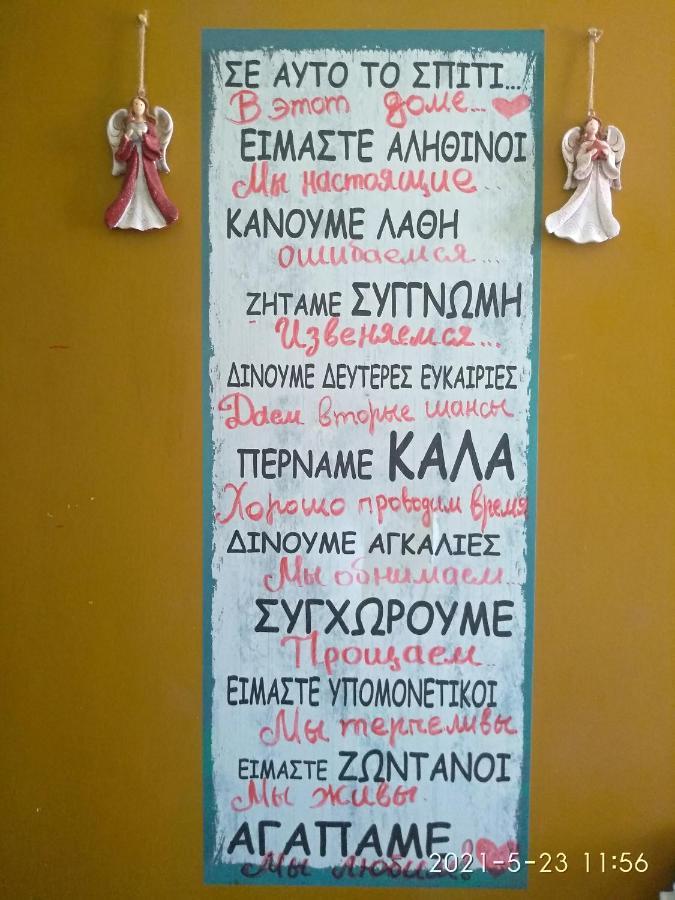 ΣΕ ΑΥΤΟ ΤΟ ΣΠΙΤΙ...
В этот доме...
ΕΙΜΑΣΤΕ ΑΛΗΘΙΝΟΙ
Мы настоящие...
ΚΑΝΟΥΜΕ ΛΑΘΗ
ошибаемся...
ΖΗΤΑΜΕ ΣΥΓΓΝΩΜΗ
Извеняемся...
ΔΙΝΟΥΜΕ ΔΕΥΤΕΡΕΣ ΕΥΚΑΙΡΙΕΣ
Даем вторые шансы
ΠΕΡΝΑΜΕ ΚΑΛΑ
Хорошо проводим время
ΔΙΝΟΥΜΕ ΑΓΚΑΛΙΕΣ
Мы обнимаем...
ΣΥΓΧΩΡΟΥΜΕ
Прощаем..
ΕΙΜΑΣΤΕ ΥΠΟΜΟΝΕΤΙΚΟΙ
Мы терпеливы
ΕΙΜΑΣΤΕ ΖΩΝΤΑΝΟΙ
Мы живы.
ΑΓΑΠΑΜΕ
Мы
2021-5-23 11:56